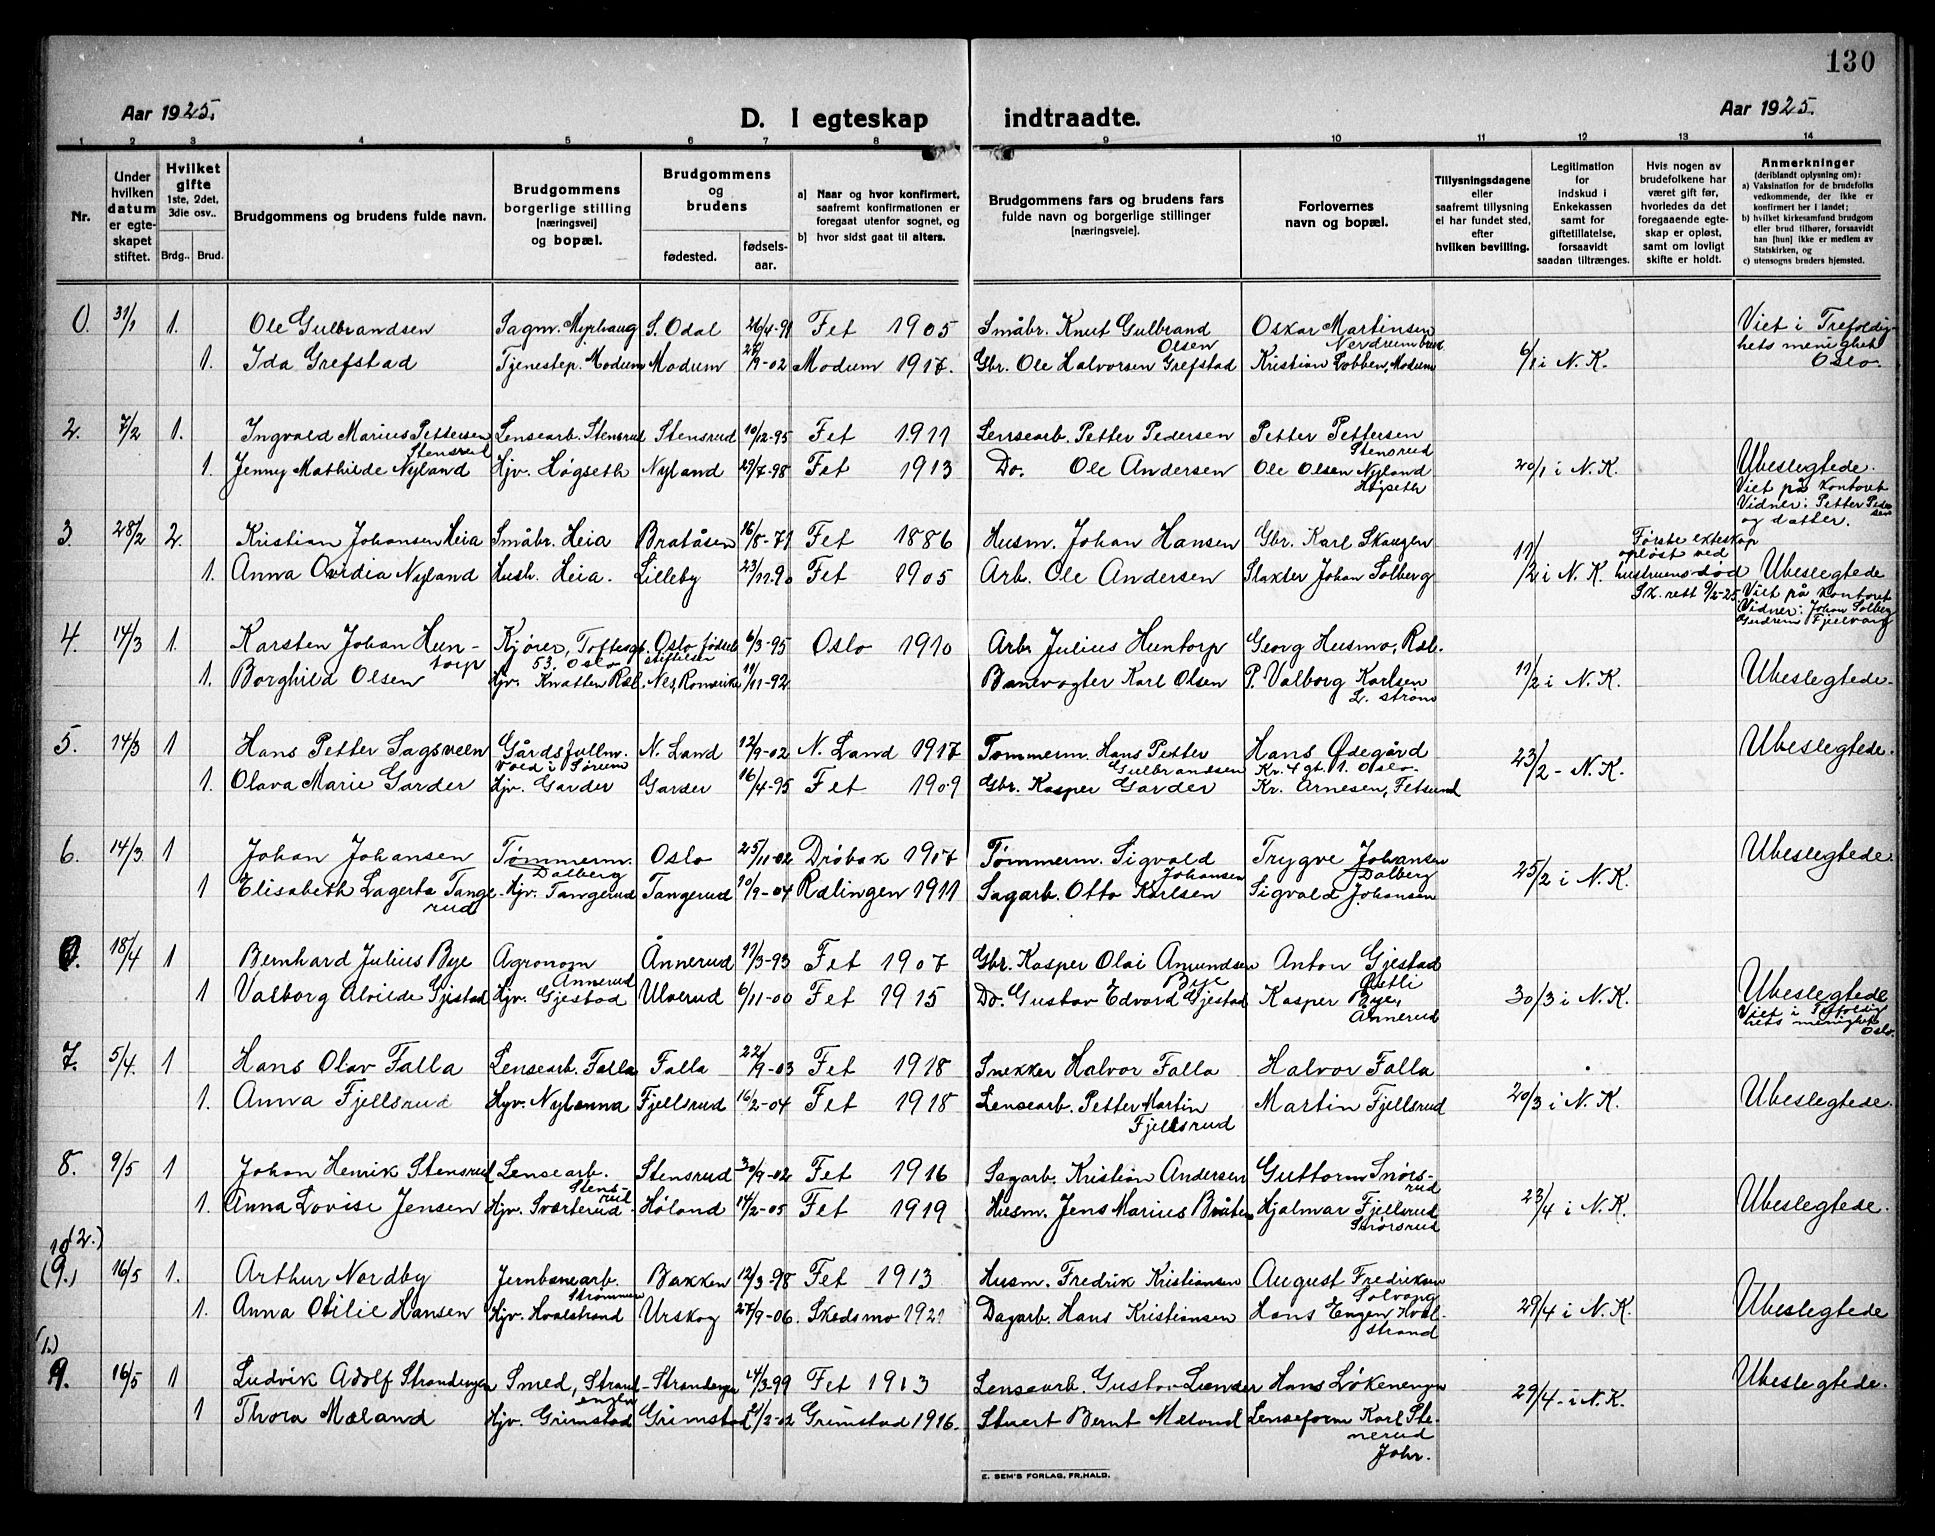 130
Aar 1925.
D. I egteskap indtraadte.
Aar 1925.
1 2 3 4 5 6 7 8 9 10 11 12 13 14
Nr.
Under hvilken datum er egteskapet stiftet.
Hvilket gifte 1ste, 2det, 3die osv..
Brdg.. Brud.
Brudgommens og brudens fulde navn.
Brudgommens borgerlige stilling [næringsvei] og bopæl.
Brudgommens og brudens
fødested.
fødsels-aar.
a) Naar og hvor konfirmert, saafremt konfirmationen er foregaat utenfor sognet, og
b) hvor sidst gaat til alters.
Brudgommens fars og brudens fars fulde navn og borgerlige stillinger [næringsveie].
Forlovernes navn og bopæl.
Tillysningsdagene eller saafremt tillysning ei har fundet sted, efter hvilken bevilling.
Legitimation for indskud i Enkekassen samt for giftetillatelse, forsaavidt saadan tiltrænges.
Hvis nogen av brudefolkene har været gift før, hvorledes da det foregaaende egteskap er opløst, samt om lovligt skifte er holdt.
Anmerkninger (deriblandt oplysning om):
a) Vaksination for de brudefolks vedkommende, der ikke er konfirmert her i landet;
b) hvilket kirkesamfund brudgom eller brud tilhører, forsaavidt han [hun] ikke er medlem av Statskirken, og
c) utensogns bruders hjemsted.
0. 31/1 1. Ole Gulbrandsen Sagm. Myrhaug S. Odal 26/4-91 Fet 1905 Småbr. Knut Gulbrand Olsen Oskar Martinsen Nerdrumbrud Viet i Trefoldighets menighet Oslo.
1. Ida Grefstad Tjenestep. Modum Modum 28/9-02 Modum 1917. Gbr. Ole Halvorsen Grefstad Kristian Lobben, Modum 6/1 i N. K.
2. 7/2 1. Ingvald Marius Pettersen Stensrud Lensearb. Stensrud Stensrud 10/12-95 Fet 1911 Lensearb. Petter Pedersen Petter Pettersen Stensrud
1. Jenny Mathilde Nyland Hjv. Høgseth Nyland 29/7-98 Fet 1913 Do. Ole Andersen Ole Olsen Nyland Høgseth 20/1 i N. K. Ubeslegtede. Viet på kontoret Vidner: Petter Pedersen og datter.
3 28/2 2. Kristian Johansen Heia Småbr. Heia Bratåsen 16/8-71 Fet 1886 Husm. Johan Hansen Gbr. Karl Skaugen Første exteskap opløst ved hustruens død Sk. rett 9/2-25
1. Anna Ovidia Nyland Hush. Heia. Lilleby 23/11-90 Fet 1905 Arb. Ole Andersen Slakter Johan Solberg 11/2 i N. K. Ubeslegtede Viet på kontoret Vidner: Johan Solberg Gudrun Fjelvang
4. 14/3 1. Karsten Johan Huntorp Kjører, Toftesg. 53. Oslo Oslo fødselsstiftelse 6/3-95 Oslo 1910 Arb. Julius Huntorp Georg Husmo, Ræl.
1. Borghild Olsen Hjv. Knatten Ræl. Nes, Romerike 11/11-92 Banevogter Karl Olsen P. Valborg Karlsen L. strøm 11/2 i N. K. Ubeslegtede.
5. 14/3 1 Hans Petter Sagsveen Gårdsfullm. Vold i Sørum N. Land 12/9-02 N. Land 1917 Tømmerm. Hans Petter Gulbrandsen Hans Ødegård Kr. 4 gt. 1. Oslo. Ubeslegtede.
1. Olava Marie Garder Hjv. Garder Garder 16/4-95 Fet 1909 Gbr. Kasper Garder Kr. Arnesen, Fetsund 23/2 - N. K.
6. 14/3 1 Johan Johansen Tømmerm. Dalberg Oslo 25/11-02 Drøbak 1917 Tømmerm. Sigvald Johansen Trygve Johansen Dalberg Ubeslegtede
1 Elisabeth Lagerta Tangerud Hjv. Tangerud Tangerud 10/9-04 Rælingen 1911 Sagarb. Otto Karlsen Sigvald Johansen 25/2 i N. K.
0. 18/4 1 Bernhard Julius Bye Agronom Ånnerud Ånnerud 17/3-93 Fet 1907 Gbr. Kasper Olai Amundsen Bye Anton Gjestad
1 Valborg Alvilde Gjestad Hjv. Gjestad Ulverud 6/11-00 Fet 1915 Do. Gustav Edvard Gjestad Kasper Bye, Ånnerud 30/3 i N. K. Ubeslegtede Viet i Trefoldighets menighet Oslo.
7. 5/4. 1 Hans Olav Falla Lensearb. Falla Falla 22/9-03 Fet 1918 Snekker Halvor Falla Halvor Falla
1. Anna Fjellsrud Hjv. Nylænna Fjellsrud 16/2-04 Fet 1918 Lensearb. Petter Martin Fjellsrud Martin Fjellsrud 20/3 i N. K. Ubeslegtede.
8. 9/5 1 Johan Henrik Stensrud Lensearb. Stensrud Stensrud 30/9-02 Fet 1916 Sagarb. Kristian Andersen Guttorm Snørsrud
1. Anna Lovise Jensen Hjv. Svarterud Høland 14/2-05 Fet 1919 Husm. Jens Marius Bråten Hjalmar Fjellsrud 23/4 i N. K. Ubeslegtede.
10 (2.) (9.) 16/5 1. Arthur Nordby Jernbanearb. Strømmen Bakken 12/3-98 Fet 1913 Husm. Fredrik Kristiansen August Fredriksen Solvang
1. Anna Otilie Hansen Hjv. Hvalstrand Urskog 27/9-06. Skedsmo 1921 Dagarb. Hans Kristiansen Hans Engen Hvalstrand 29/4 i N. K. Ubeslegtede
(1.) 9. 16/5 1 Ludvik Adolf Strandengen Smed, Strandengen Strandengen 24/3-99 Fet 1913 Lensearb. Gustav Lunder Hans Løkenengen Ubeslegtede.
1 Thora Mæland Hjv. Grimstad Grimstad 21/2-02 Grimstad 1916. Stuert Bernt Mæland Lenseform Karl Stenerud Johr. 29/4 - i N. K.
E. SEM'S FORLAG, FR.HALD.